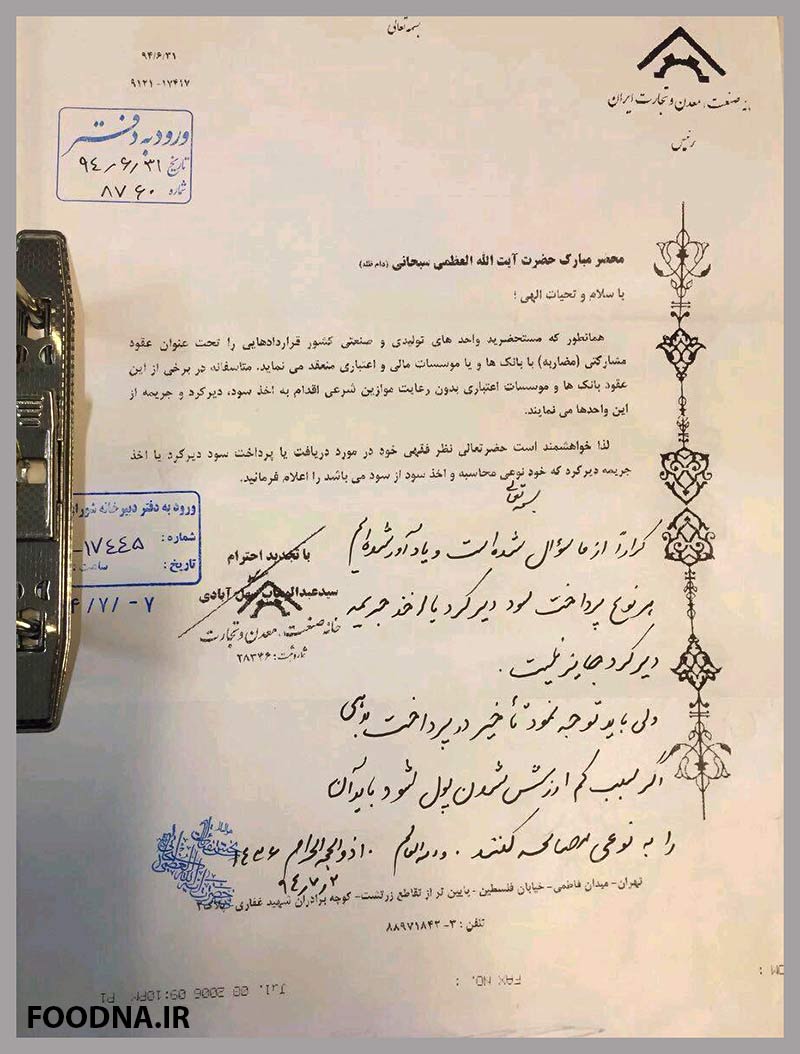 بسمه تعالی
۹۴/۶/۳۱
۹۱۲۱-۱۷۴۹۷
خانه صنعت، معدن و تجارت ایران
رئیس
ورود به دفتر
تاریخ ۹۴،۶،۳۱
شماره ۸۷۶۰
محضر مبارک حضرت آیت الله العظمی سبحانی (دام ظله)
با سلام و تحیات الهی ؛
همانطور که مستحضرید واحد های تولیدی و صنعتی کشور قراردادهایی را تحت عنوان عقود
مشارکتی (مضاربه) با بانک ها و یا موسسات مالی و اعتباری منعقد می نماید. متاسفانه در برخی از این
عقود بانک ها و موسسات اعتباری بدون رعایت موازین شرعی اقدام به اخذ سود، دیرکرد و جریمه از
این واحدها می نمایند.
لذا خواهشمند است حضرتعالی نظر فقهی خود در مورد دریافت یا پرداخت سود دیرکرد یا اخذ
جریمه دیرکرد که خود نوعی محاسبه و اخذ سود از سود می باشد را اعلام فرمائید.
با تجدید احترام
خانه صنعت، معدن و تجارت
شماره ثبت: ۲۸۳۴۶
ورود به دفتر دبیرخانه شورا
شماره: ۱۷۴۴۵-
تاریخ: ساعت
۴/۷/-۷
بسمه تعالی
کراراً از ما سؤال شده است و یادآور شده‌ایم
هر نوع پرداخت سود دیرکرد یا اخذ جریمه
دیرکرد جایز نیست.
ولی باید توجه نمود تأخیر در پرداخت بدهی
اگر سبب کم ارزش شدن پول شود باید آن
را به نوعی مصالحه کنند. والله العالم ۱۰ ذوالحجة الحرام ۱۴۳۶
۹۴،۷،۲
تهران- میدان فاطمی- خیابان فلسطین - پایین تر از تقاطع زرتشت- کوچه برادران شهید غفاری- پلاک ۲
تلفن : ۳-۸۸۹۷۱۸۴۲
Jul. 08 2006 09:10PM P1
FAX NO. :
FOODNA.IR